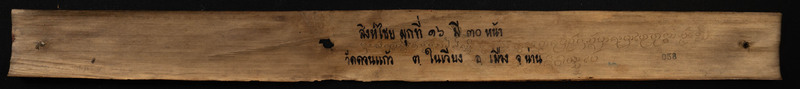 สิงห์ไชย ผูกที่ ๑๖ มี ๓๐ หน้า
วัดดอนแก้ว ต.ในเวียง อ.เมือง จ.น่าน
058